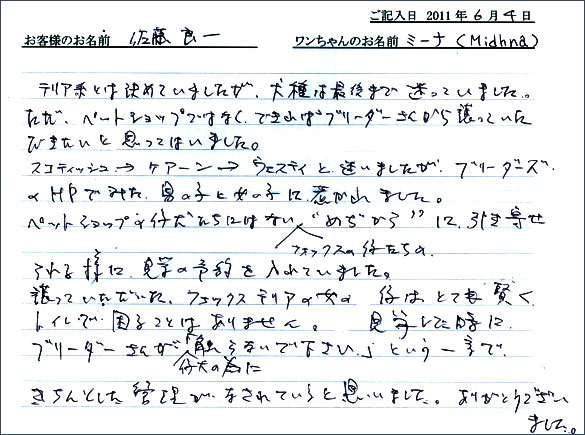 ご記入日 2011年 6月 4日
お客様のお名前 佐藤 良一 ワンちゃんのお名前 ミーナ (Midhna)
テリア系とは決めていましたが、犬種は最後まで迷っていました。
ただ、ペットショップではなく、できればブリーダーさんから譲っていた
だきたいと思ってはいました。
スコティッシュ→ケアーン→ウェスティと迷いましたが、ブリーダーズ・
のHPでみた、男の子と女の子に惹かれました。
ペットショップの仔犬たちにはない、"めぢから"に引き寄せ
フォックスの仔たちの
られる様に、見学の予約を入れていました。
譲っていただいた、フォックステリアの女の仔は、とても賢く、
トイレで困ることはありません。 見学した時に、
ブリーダーさんが「触らないで下さい。」という一言で、
仔犬の為に
きちんとした管理がなされていると思いました。ありがとうござい
ました。